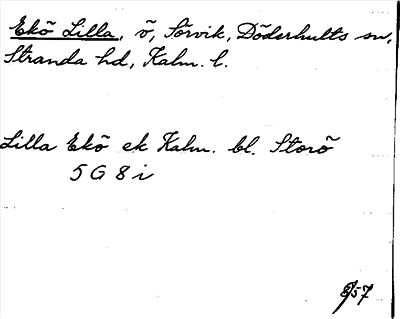 Ekö Lilla, ö, Sörvik, Döderhults sn,
Stranda hd, Kalm. l.
Lilla Ekö ek Kalm. bl. Storö
5 G 8 i
8/57